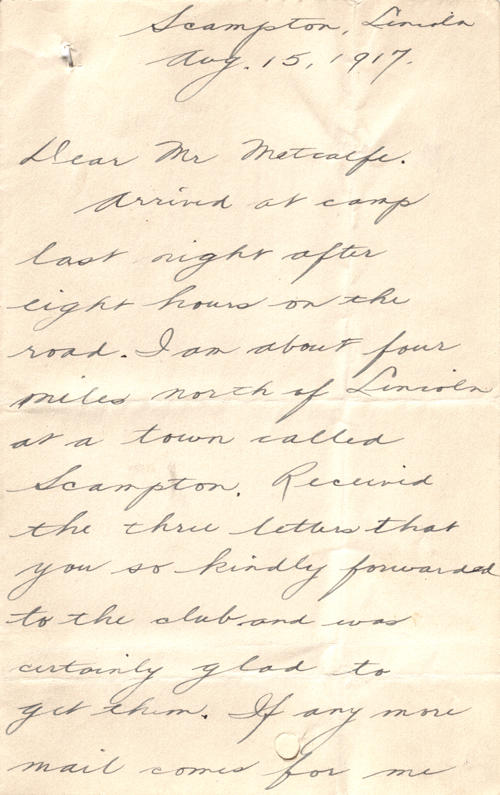 Scampton, Lincoln
Aug. 15, 1917.
Dear Mr Metcalfe.
Arrived at camp
last night after
eight hours on the
road. I am about four
miles north of Lincoln
at a town called
Scampton. Received
the three letters that
you so kindly forwarded
to the club and was
certainly glad to
get them. If any more
mail comes for me